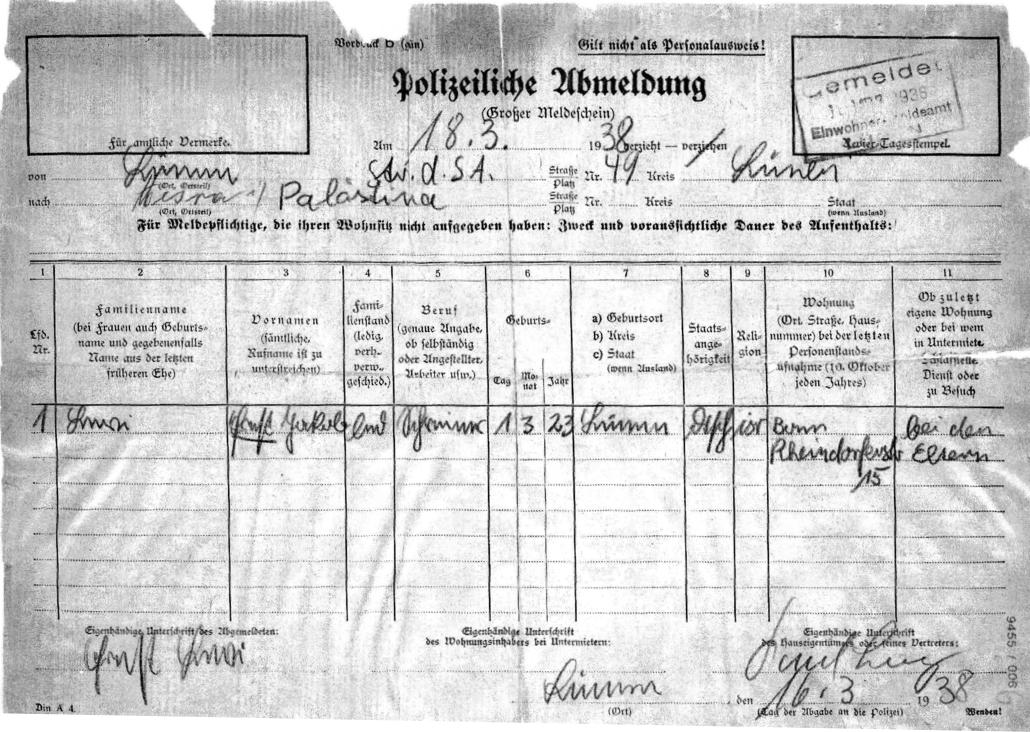 Vordruck D (grün)
Gilt nicht als Personalausweis!
Polizeiliche Abmeldung
(Großer Meldeschein)
Gemeldet
1938
Einwohnermeldeamt
Für amtliche Vermerke.
Am 18.3. 1938 verzieht — verziehen
Revier-Tagesstempel.
von Lünen Str. d. S.A. Straße Platz Nr. 49 Kreis Lünen
(Ort, Ortsteil)
nach Palästina Straße Platz Nr. Kreis Staat
(Ort, Ortsteil)
(wenn Ausland)
Für Meldepflichtige, die ihren Wohnsitz nicht aufgegeben haben: Zweck und voraussichtliche Dauer des Aufenthalts:
1 2 3 4 5 6 7 8 9 10 11
Lfd. Nr.
Familienname
(bei Frauen auch Geburts-
name und gegebenenfalls
Name aus der letzten
früheren Ehe)
Vornamen
(sämtliche,
Rufname ist zu
unterstreichen)
Fami-
lienstand
(ledig,
verh.
verw.
geschied.)
Beruf
(genaue Angabe,
ob selbständig
oder Angestellter,
Arbeiter usw.)
Geburts-
Tag Mo-nat Jahr
a) Geburtsort
b) Kreis
c) Staat
(wenn Ausland)
Staats-
ange-
hörigkeit
Reli-
gion
Wohnung
(Ort, Straße, Haus-
nummer) bei der letzten
Personenstands-
aufnahme (10. Oktober
jeden Jahres)
Ob zuletzt
eigene Wohnung
oder bei wem
in Untermiete,
Schlafstelle,
Dienst oder
zu Besuch
1 Ernst Jakob led 1 3 23 Lünen Dtsch isr Bonn bei den
Rheindorferstr Eltern
15
Eigenhändige Unterschrift des Abgemeldeten:
Eigenhändige Unterschrift
des Wohnungsinhabers bei Untermietern:
Eigenhändige Unterschrift
des Hauseigentümers oder seines Vertreters:
Ernst
Lünen, den 16.3 1938
(Ort)
(Tag der Abgabe an die Polizei)
Wenden!
Din A 4.
9455 / 006